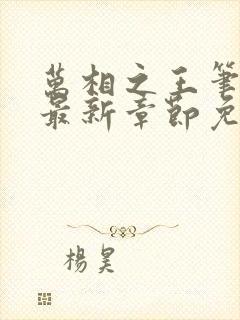 萬相之王筆
最新章節免
楊昊